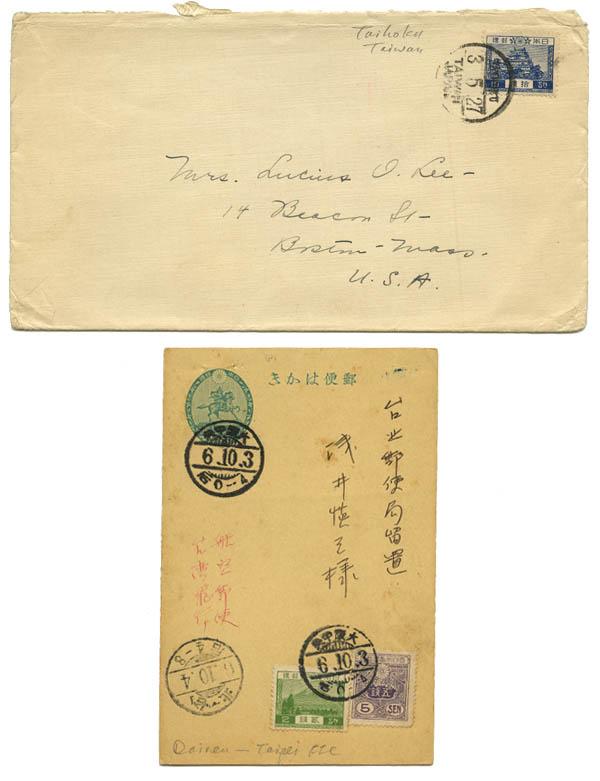 Taihoku
Taiwan
3.5.27
TAIWAN
JAPAN
Mrs. Lucius O. Lee-
14 Beacon St-
Boston-Mass.
U.S.A.
きかは便郵
台北郵便局留置
浅井慎三様
6.10.3
航空郵便
台湾飛行
6.10.3
6.10.4
5 SEN
Dairen - Taipei FFC